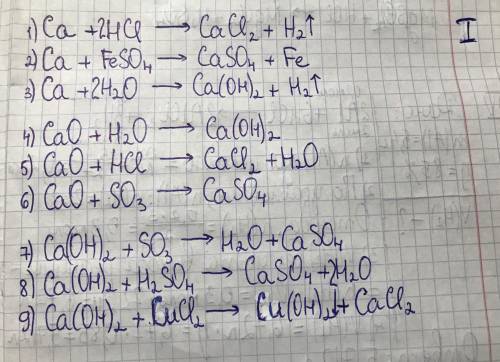 1) Ca + 2HCl → CaCl₂ + H₂↑
I
2) Ca + FeSO₄ → CaSO₄ + Fe
3) Ca + 2H₂O → Ca(OH)₂ + H₂↑
4) CaO + H₂O → Ca(OH)₂
5) CaO + HCl → CaCl₂ + H₂O
6) CaO + SO₃ → CaSO₄
7) Ca(OH)₂ + SO₃ → H₂O + CaSO₄
8) Ca(OH)₂ + H₂SO₄ → CaSO₄ + 2H₂O
9) Ca(OH)₂ + CuCl₂ → Cu(OH)₂↓ + CaCl₂